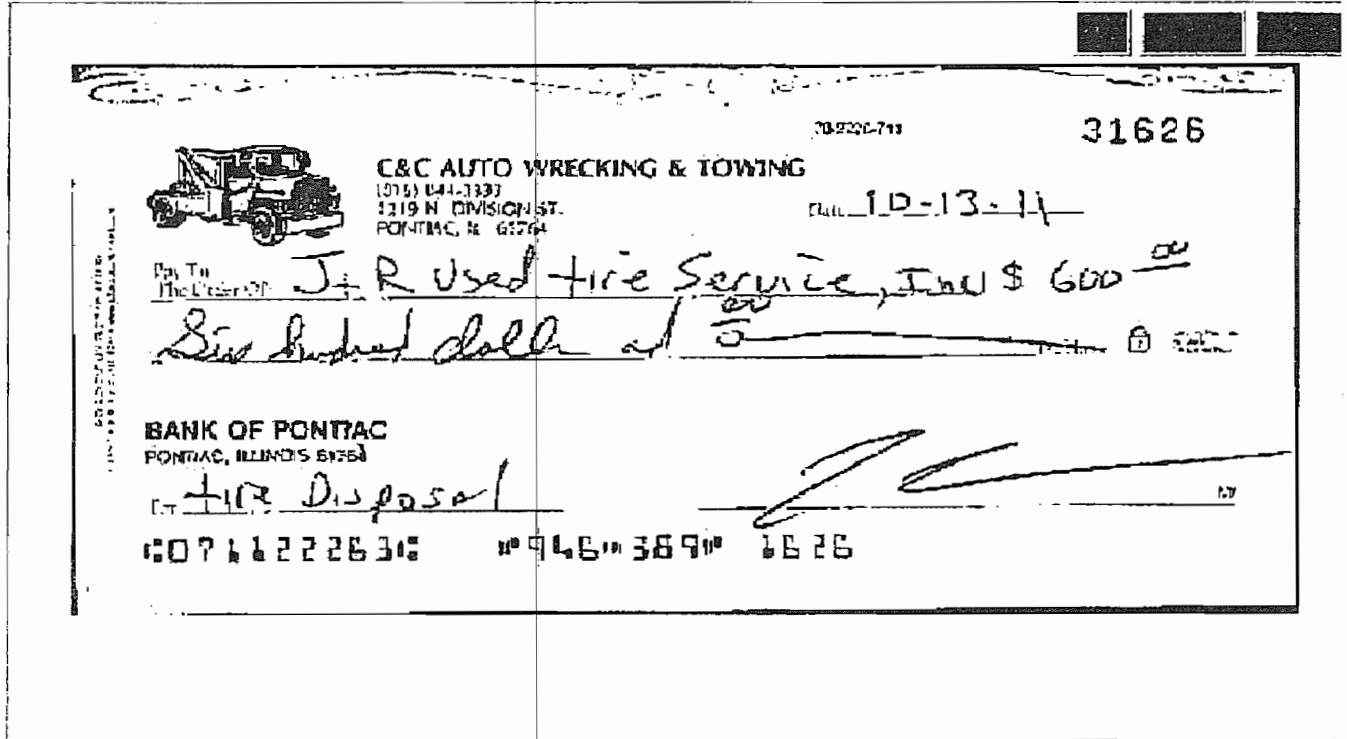 31626
C&C AUTO WRECKING & TOWING
1219 N DIVISION ST.
PONTIAC, IL 61764
Date 10-13-11
Pay To
The Order Of J+R Used tire Service, Inc $ 600 00
Six hundred dolls and 00
BANK OF PONTIAC
PONTIAC, ILLINOIS 61764
For tire Disposal
⑆071122263⑆ ⑈946⑈389⑈ 1626